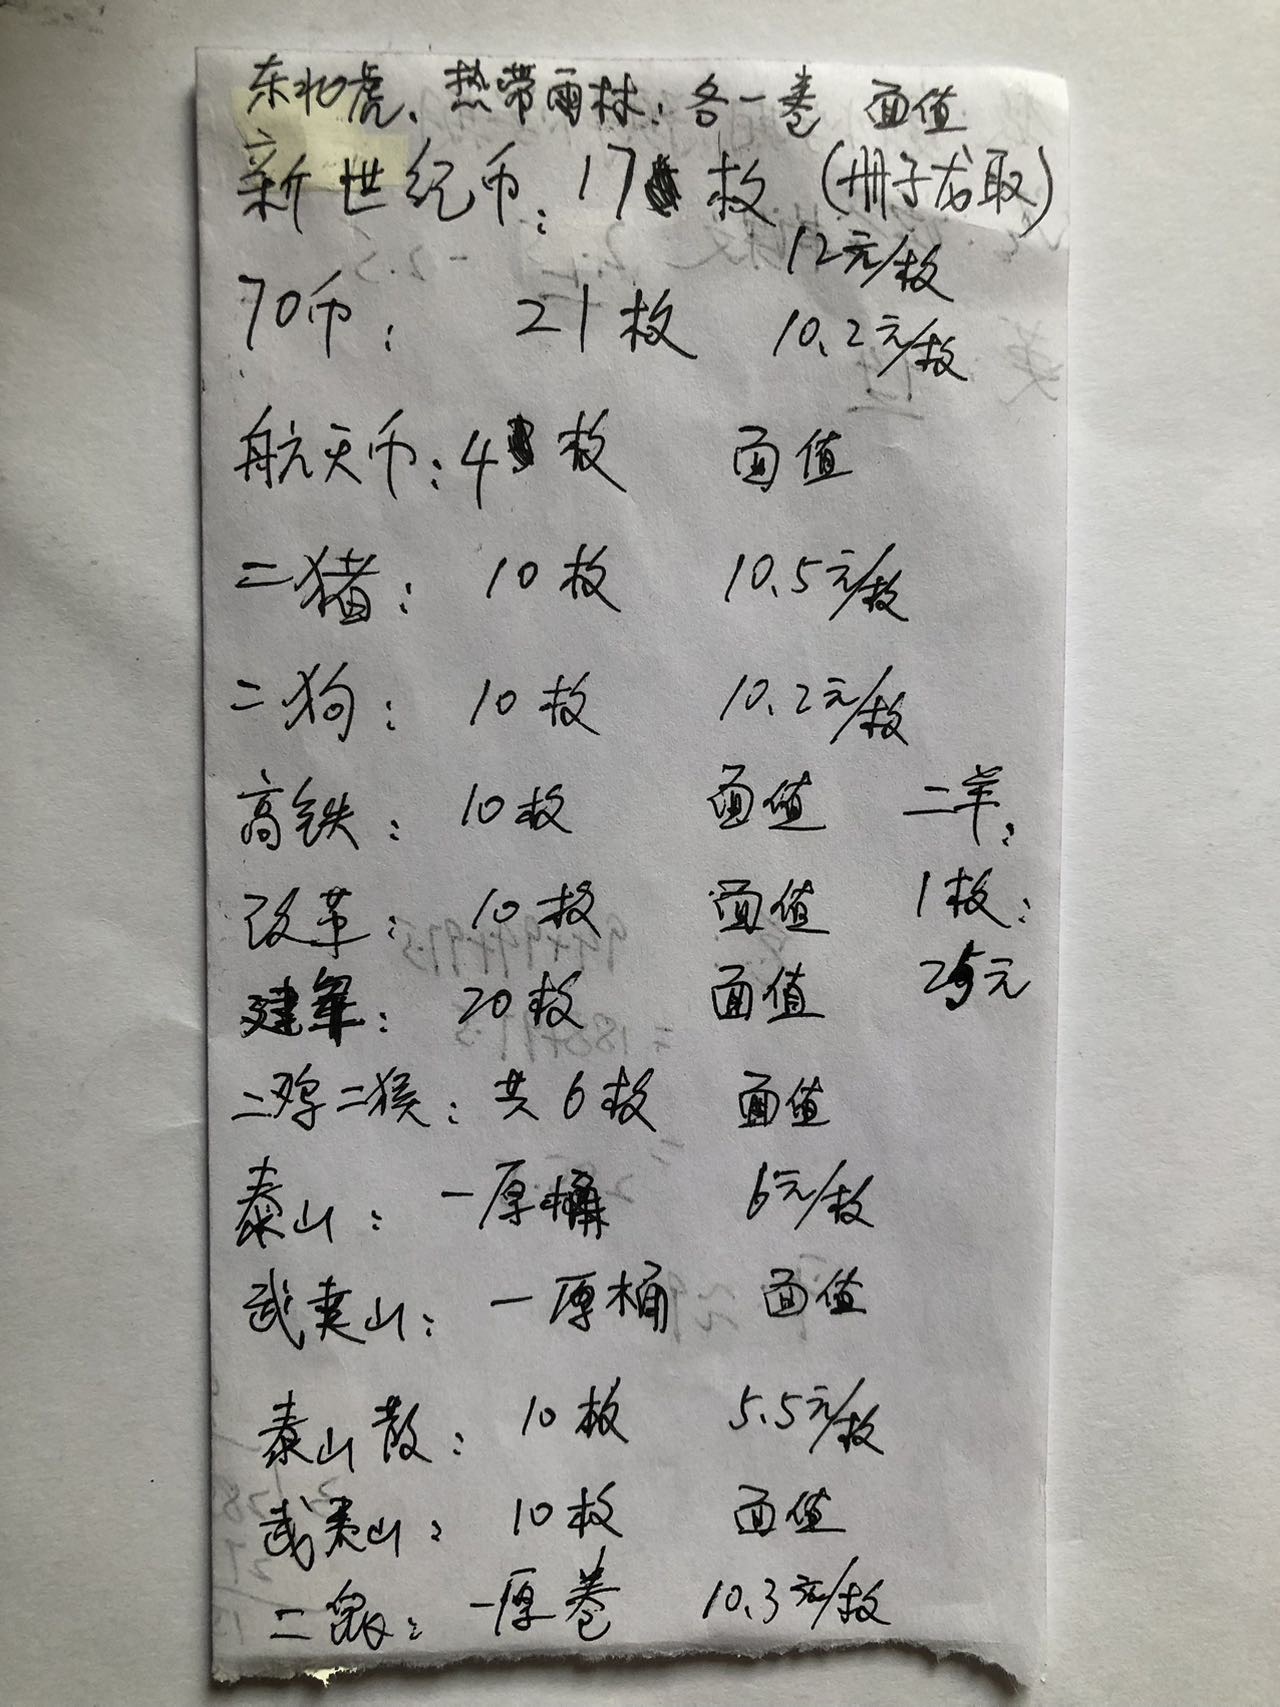 东北虎、热带雨林：各一卷 面值
新世纪币：17枚 (册子龙取)
12元/枚
70币： 21枚 10.2元/枚
航天币：4枚 面值
二猪： 10枚 10.5元/枚
二狗： 10枚 10.2元/枚
高铁： 10枚 面值 二羊：
改革： 10枚 面值 1枚：
建军： 20枚 面值 25元
二鸡二猴：共6枚 面值
泰山： 一原桶 6元/枚
武夷山： 一原桶 面值
泰山散： 10枚 5.5元/枚
武夷山： 10枚 面值
二鼠： 一原卷 10.3元/枚